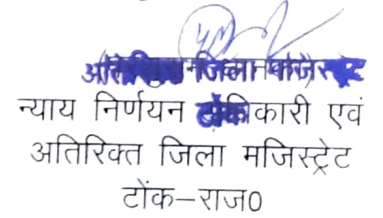 अतिरिक्त जिला मजिस्ट्रेट
न्याय निर्णयन अधिकारी एवं
अतिरिक्त जिला मजिस्ट्रेट
टोंक–राज0